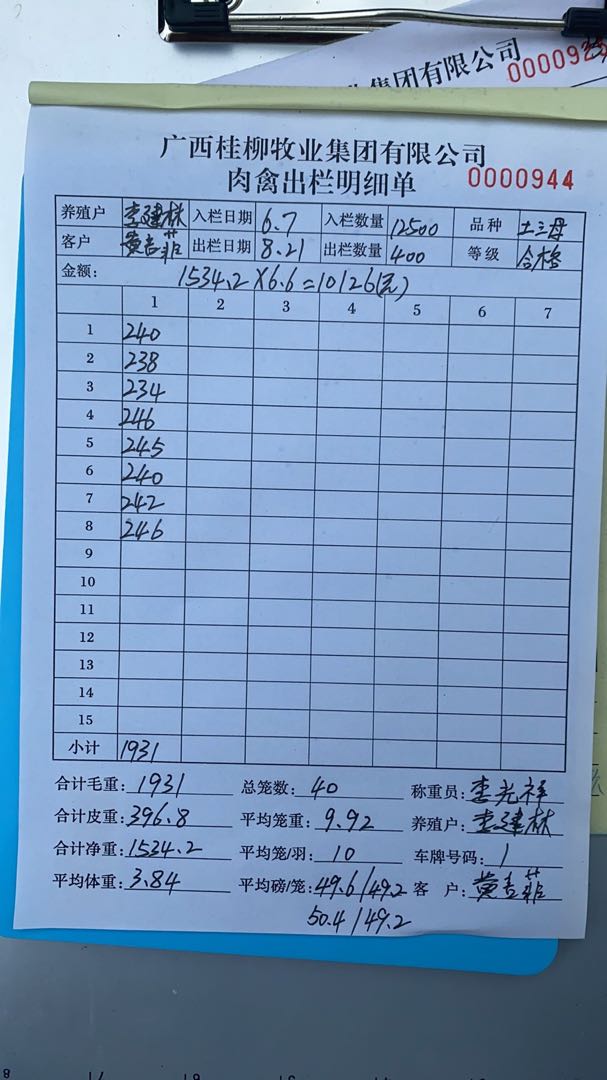 集团有限公司 0000925
广西桂柳牧业集团有限公司
肉禽出栏明细单 0000944
养殖户 李建林 入栏日期 6.7 入栏数量 12500 品种 土三母
客户 黄吉菲 出栏日期 8.21 出栏数量 400 等级 合格
金额: 1534.2×6.6=10126(元)
1 2 3 4 5 6 7
1 240
2 238
3 234
4 246
5 245
6 240
7 242
8 246
9
10
11
12
13
14
15
小计 1931
合计毛重: 1931 总笼数: 40 称重员: 李光祥
合计皮重: 396.8 平均笼重: 9.92 养殖户: 李建林
合计净重: 1534.2 平均笼/羽: 10 车牌号码: 1
平均体重: 3.84 平均磅/笼: 49.6/49.2 客户: 黄吉菲
50.4/49.2